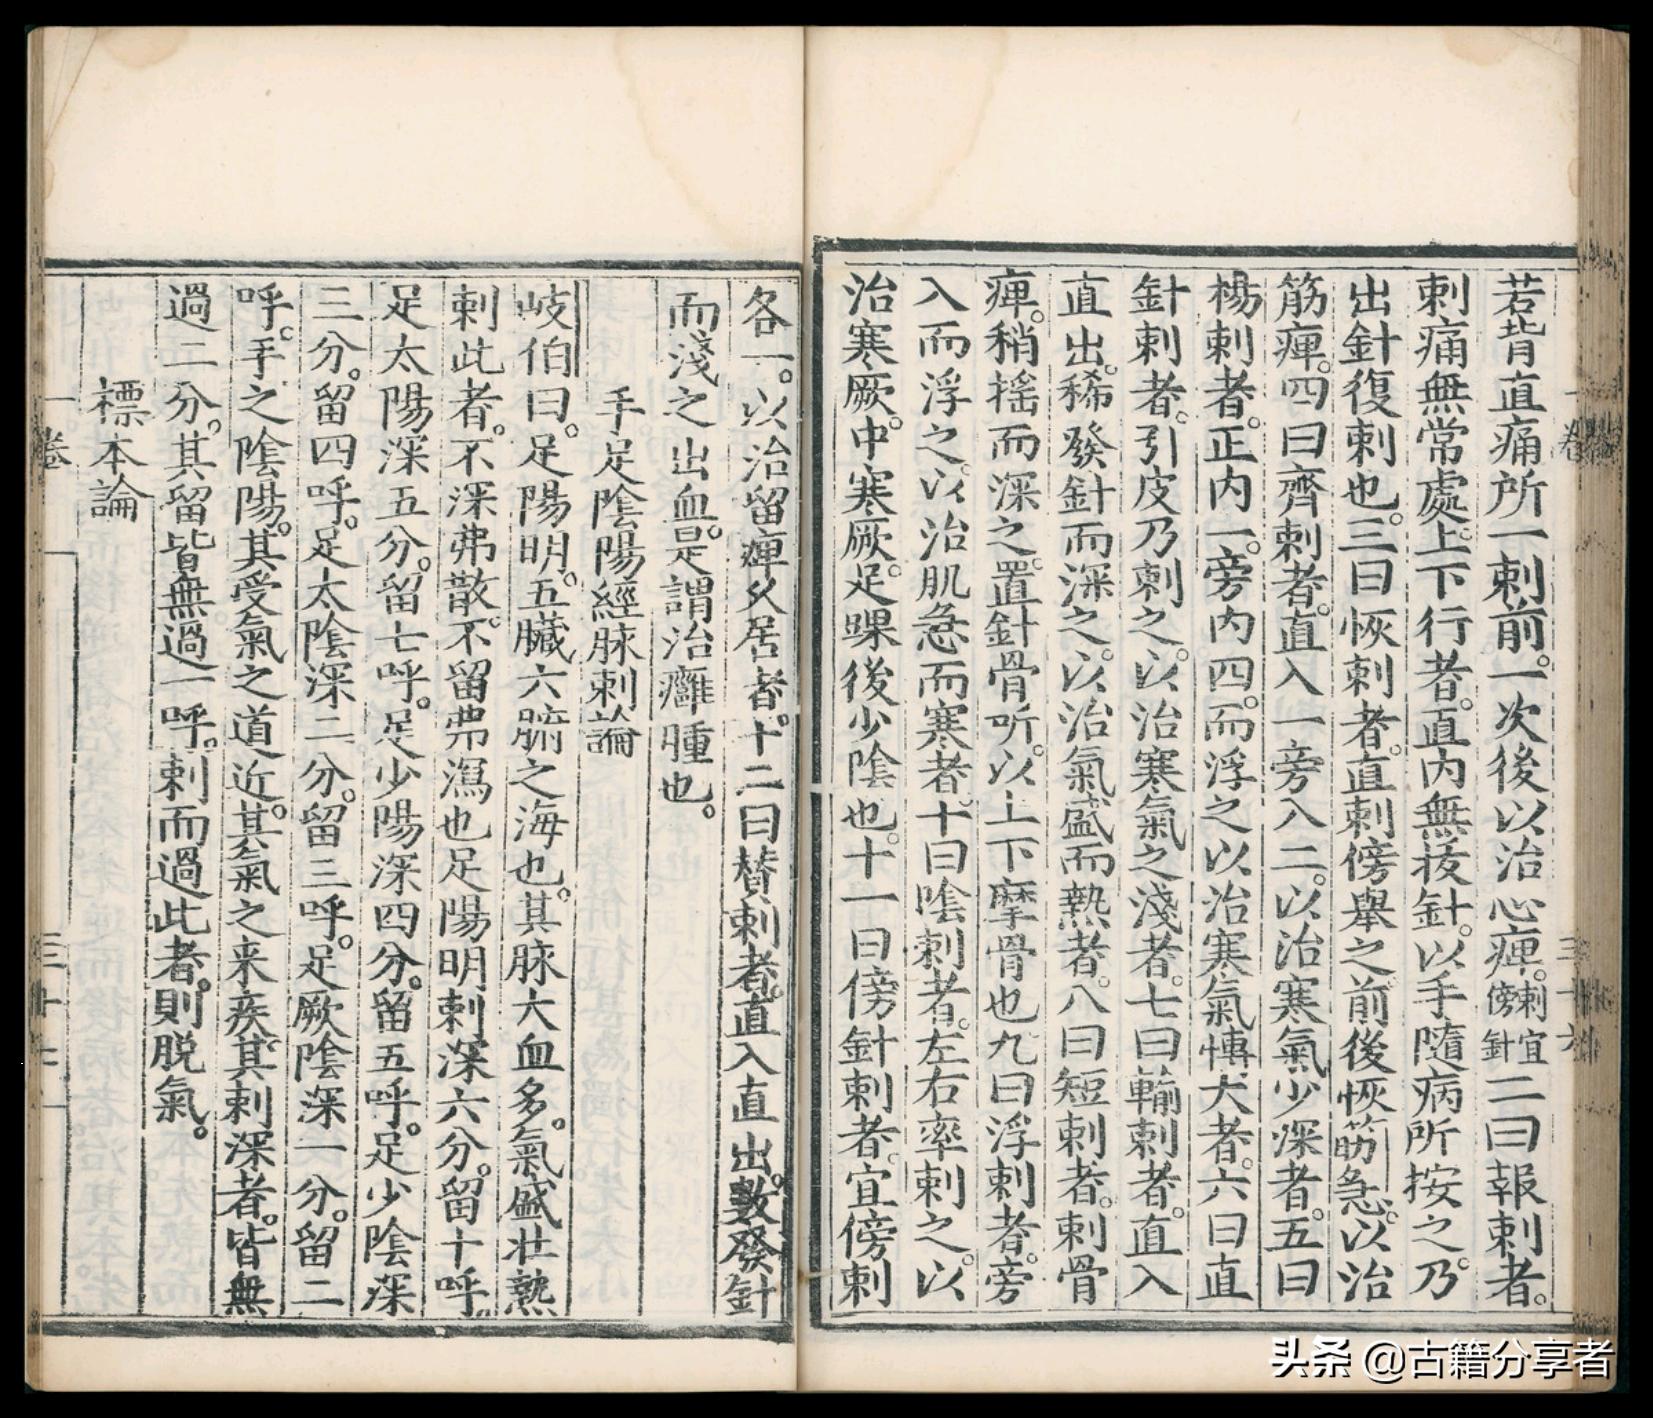 若背直痛所一刺前。一次後以治心痺。刺宜傍針二曰報刺者。
刺痛無常處。上下行者。直內無拔針。以手隨病所按之乃。
出針復刺也。三曰恢刺者。直刺傍舉之前後恢筋急。以治
筋痺。四曰齊刺者。直入一旁入二。以治寒氣少深者。五曰
楊刺者。正內一。旁內四。而浮之以治寒氣慱大者。六曰直
針刺者。引皮乃刺之。以治寒氣之淺者。七曰輸刺者。直入
直出。稀發針而深之。以治氣盛而熱者。八曰短刺者。刺骨
痺。稍搖而深之。置針骨听。以上下摩骨也九曰浮刺者。旁
入而浮之。以治肌急而寒者。十曰陰刺者。左右率刺之。以
治寒厥。中寒厥。足踝後少陰也。十一曰傍針刺者。宜傍刺
各一。以治留痺久居者。十二曰賛刺者。直入直出。數發針
而淺之出血。是謂治癰腫也。
手足陰陽經脉刺論
岐伯曰。足陽明。五臟六腑之海也。其脉大血多。氣盛壮熱
刺此者。不深弗散。不留弗瀉也足陽明刺深六分。留十呼。
足太陽深五分。留七呼。足少陽深四分。留五呼。足少陰深
二分。留三呼。足太陰深三分。留四呼。足厥陰深一分。留二
呼。手之陰陽。其受氣之道近。其氣之来疾。其刺深者。皆無
過二分。其留皆無過一呼。刺而過此者。則脱氣。
標本論
一卷
三十七
一卷
三十六
头条 @古籍分享者